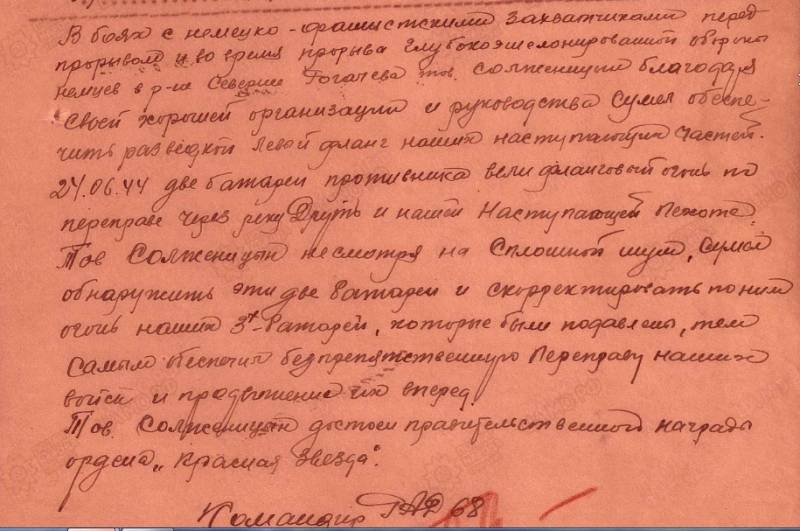 В боях с немецко-фашистскими захватчиками перед
прорывом и во время прорыва глубокоэшелонированной обороны
немцев в р-не Севернее Рогачева тов. Солженицын благодаря
своей хорошей организации и руководства сумел обеспе-
чить разведкой левой фланг наших наступающих частей.
24.06.44 две батареи противника вели фланговый огонь по
переправе через реку Друть и нашей Наступающей Пехоте.
Тов Солженицын несмотря на Сплошной шум, Сумел
обнаружить эти две батареи и скорректировать по ним
огонь наших 3х-батарей, которые были подавлены, тем
самым обеспечил безпрепятственную Переправу наших
войск и продвижение их вперед.
Тов. Солженицын достоин правительственной награды
ордена „Красная Звезда".
Командир ГАБ 68